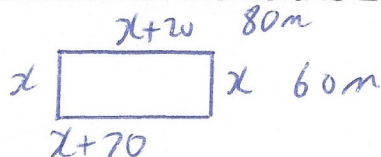 x+20 80m
x x 60m
x+20